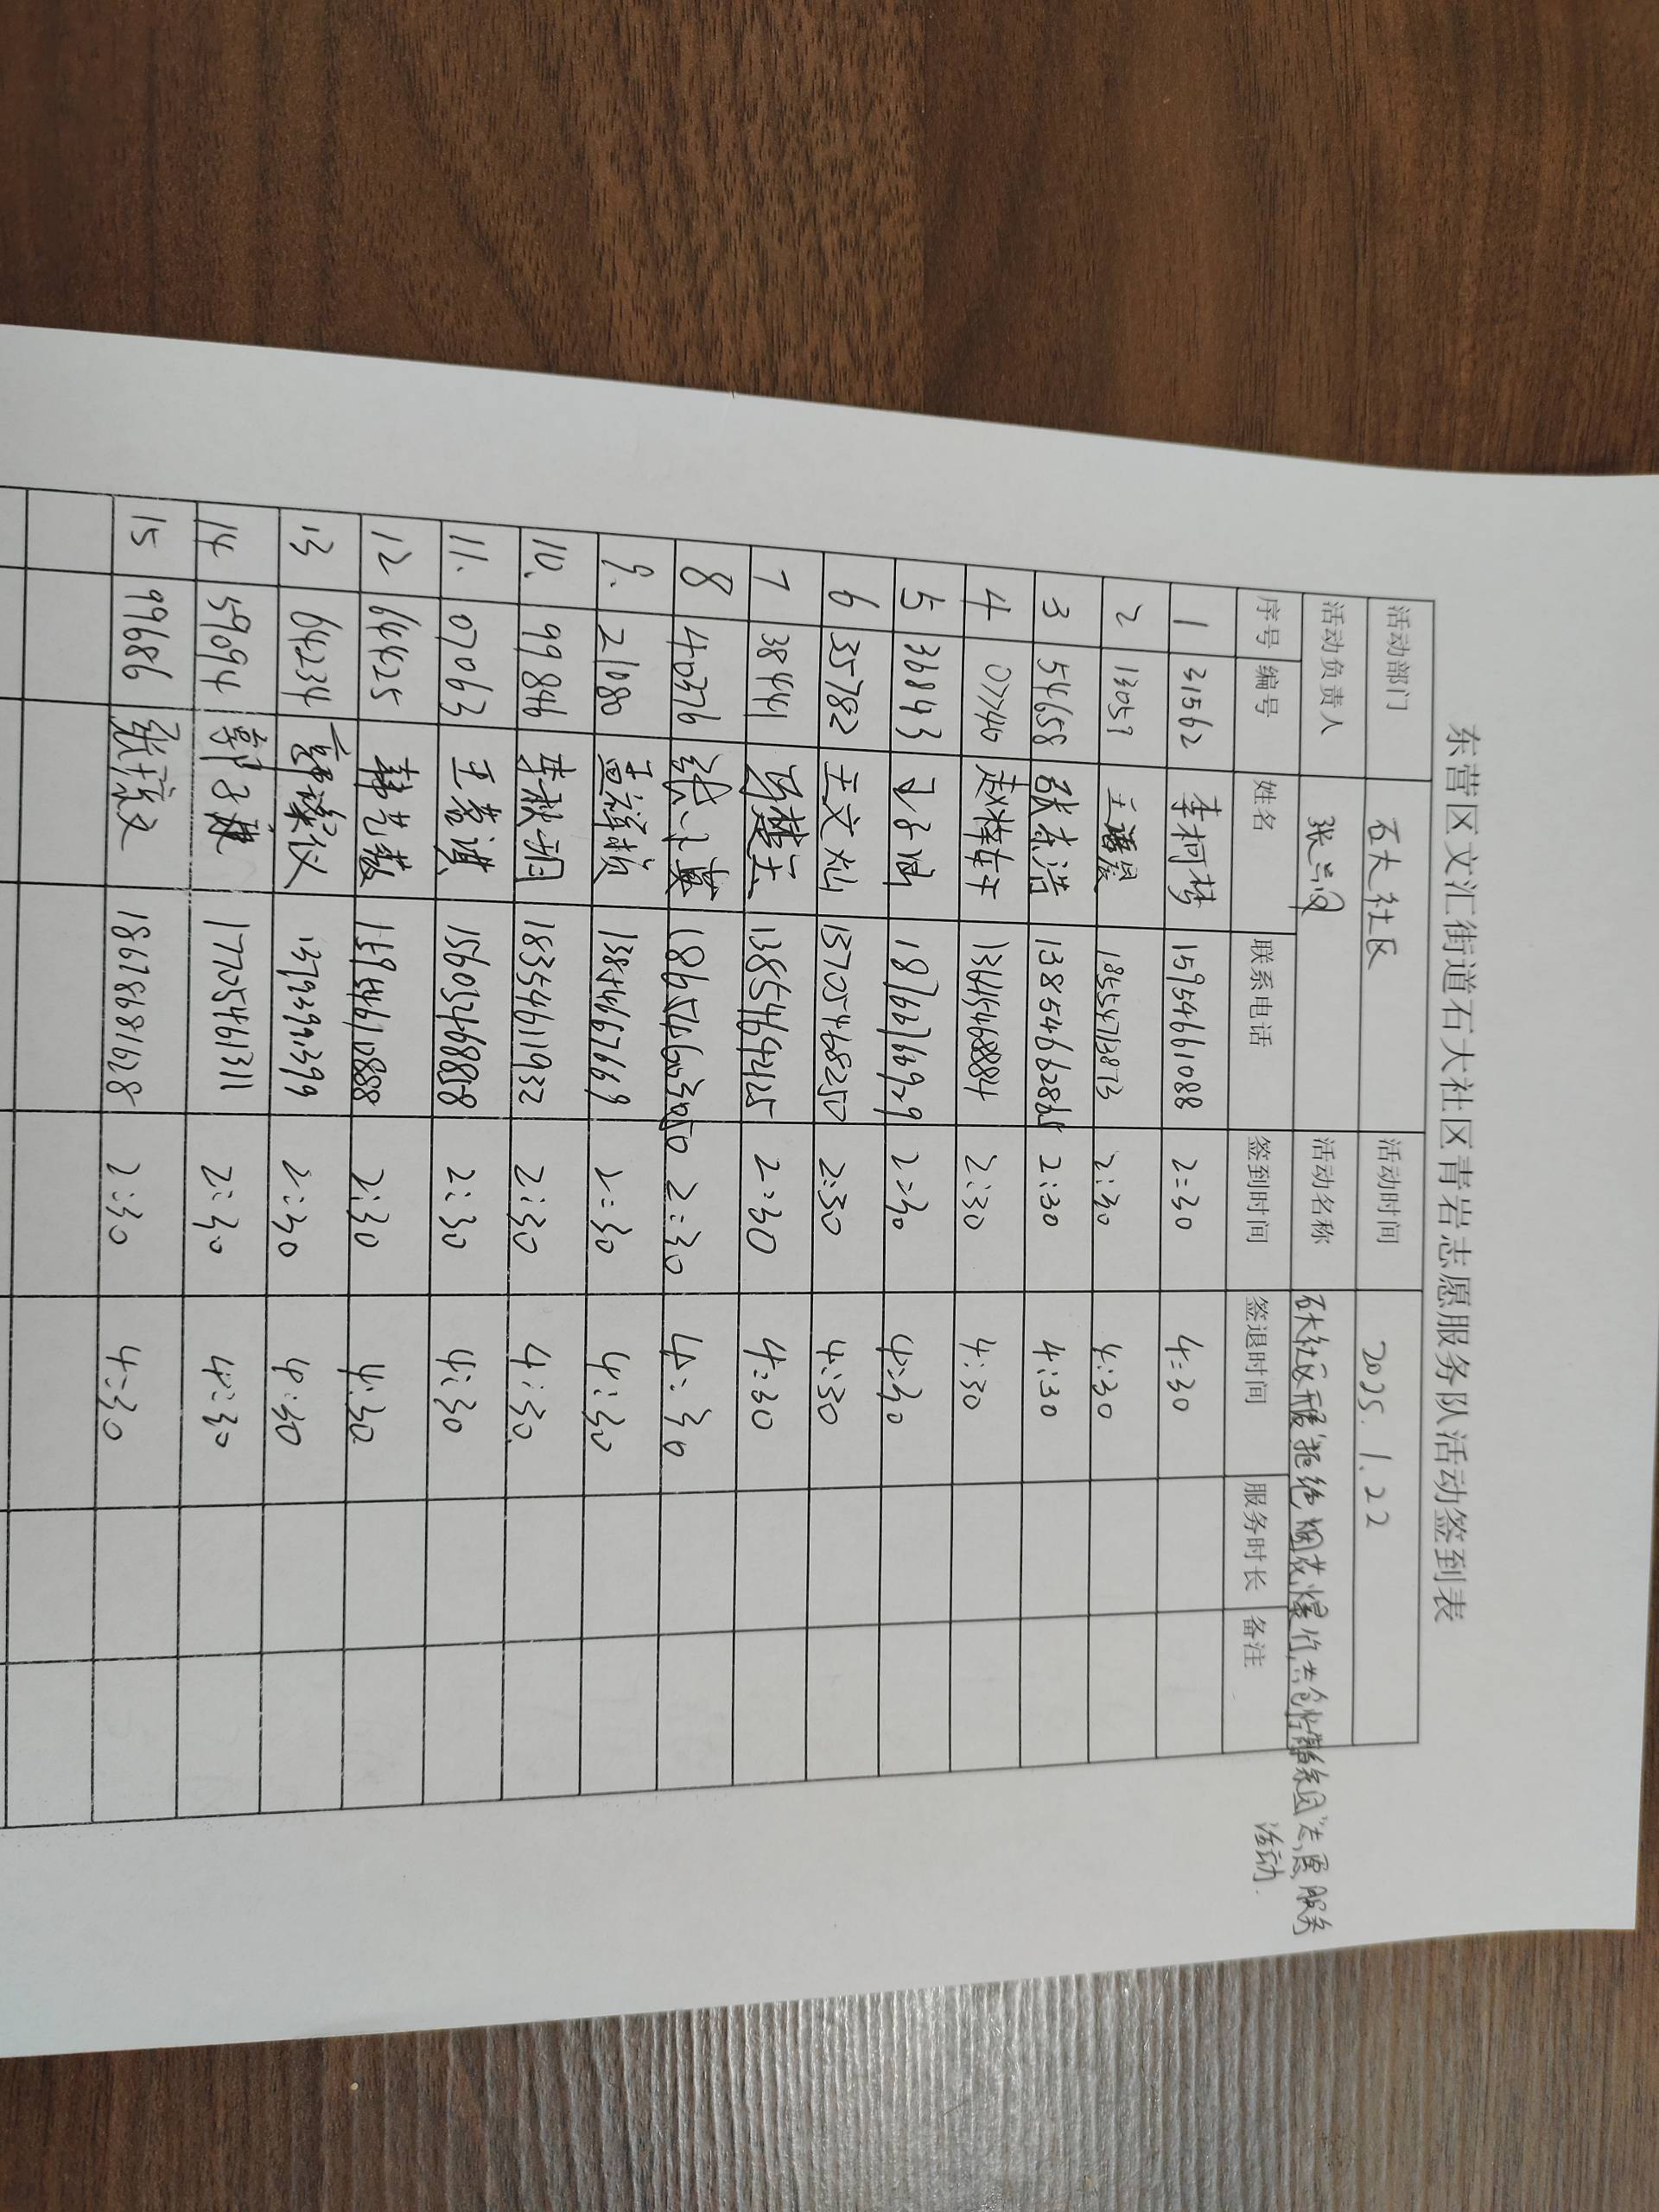 东营区文汇街道石大社区青岩志愿服务队活动签到表
活动部门 石大社区 活动时间 2025.1.22
活动负责人 活动名称 石大社区开展“拒绝烟花爆竹,共创 家园”志愿服务
活动.
序号 编号 姓名 联系电话 签到时间 签退时间 服务时长 备注
1 31562 李柯梦 15954661088 2:30 4:30
2 13059 18554713873 2:30 4:30
3 54658 张东浩 2:30 4:30
4 07740 赵梓辛 13615468884 2:30 4:30
5 36843 18766716929 2:30 4:30
6 35782 王文灿 13705468250 2:30 4:30
7 38441 马楚天 13854642425 2:30 4:30
8 40376 2:30 4:30
9. 21080 13854667669 2:30 4:30
10. 99846 李秋玥 18354611932 2:30 4:30.
11. 07063 王若淇 15605468858 2:30 4:30
12 64425 韩艺薇 2:30 4:30
13 64234 2:30 4:30
14. 59094 17705461311 2:30 4:30
15 99686 18678681628 2:30 4:30